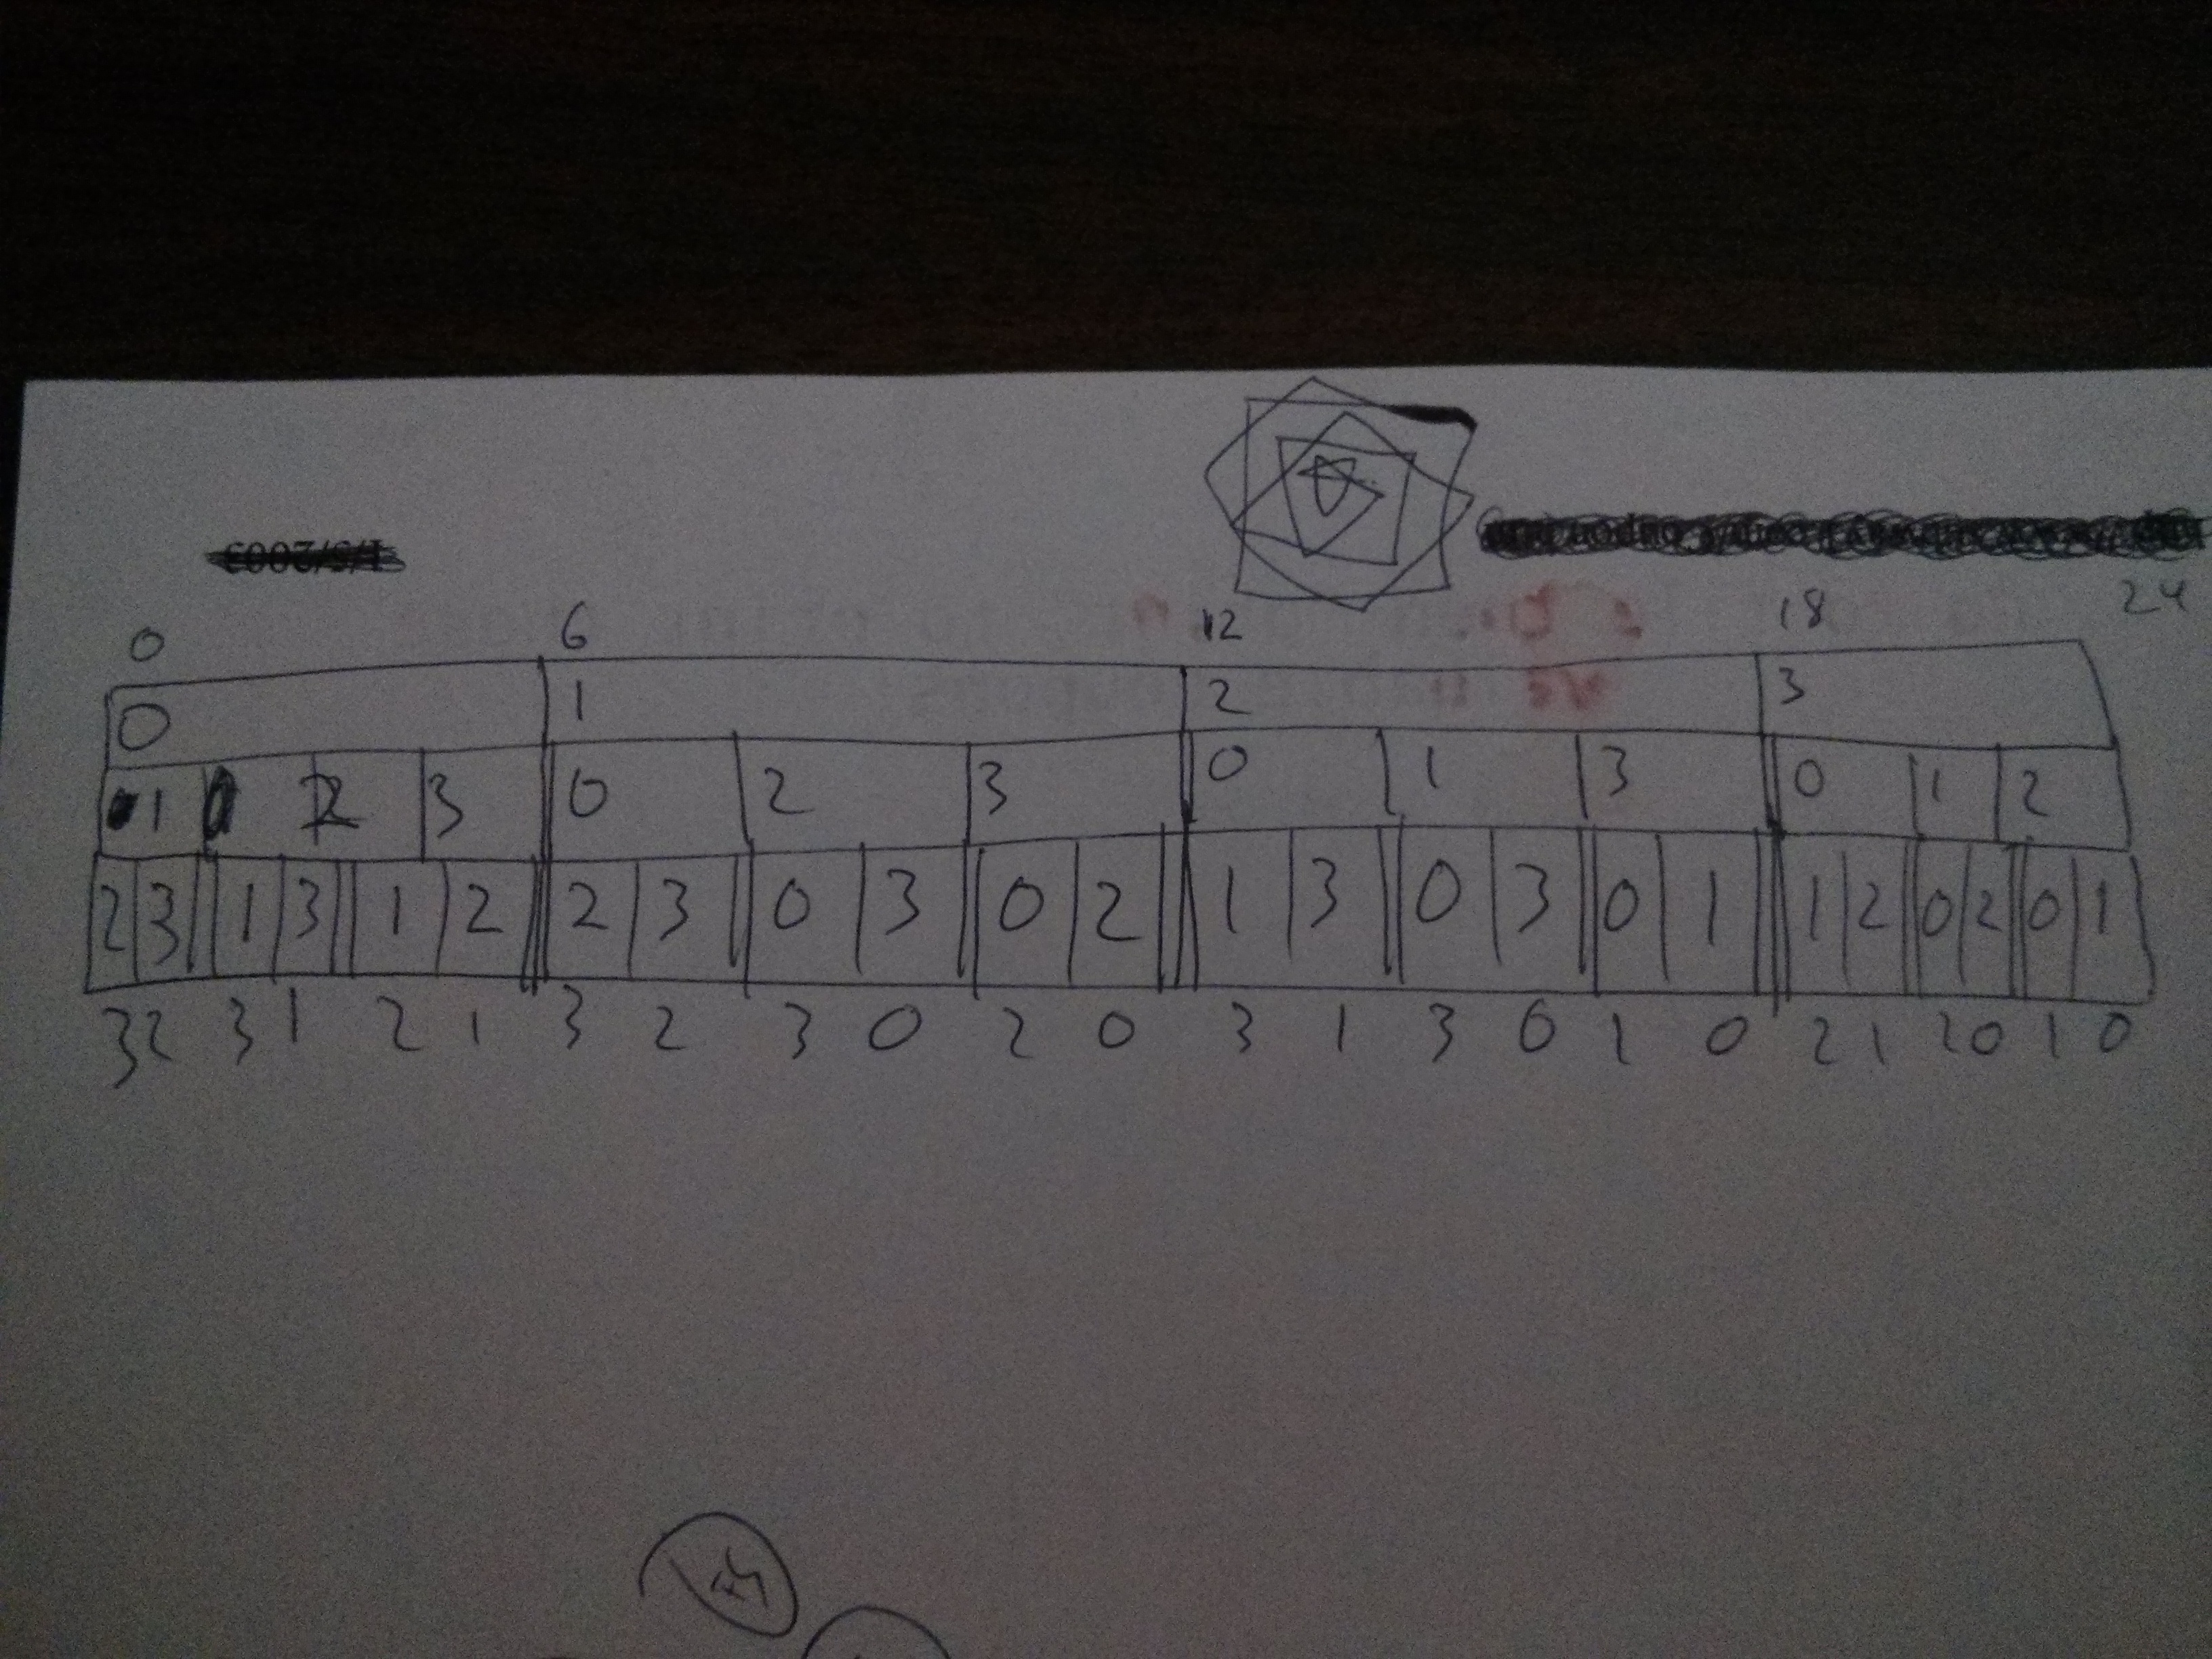 0 6 12 18 24
0 1 2 3
1 2 3 0 2 3 0 1 3 0 1 2
2 3 1 3 1 2 2 3 0 3 0 2 1 3 0 3 0 1 1 2 0 2 0 1
32 3 1 2 1 3 2 3 0 2 0 3 1 3 0 1 0 21 20 1 0